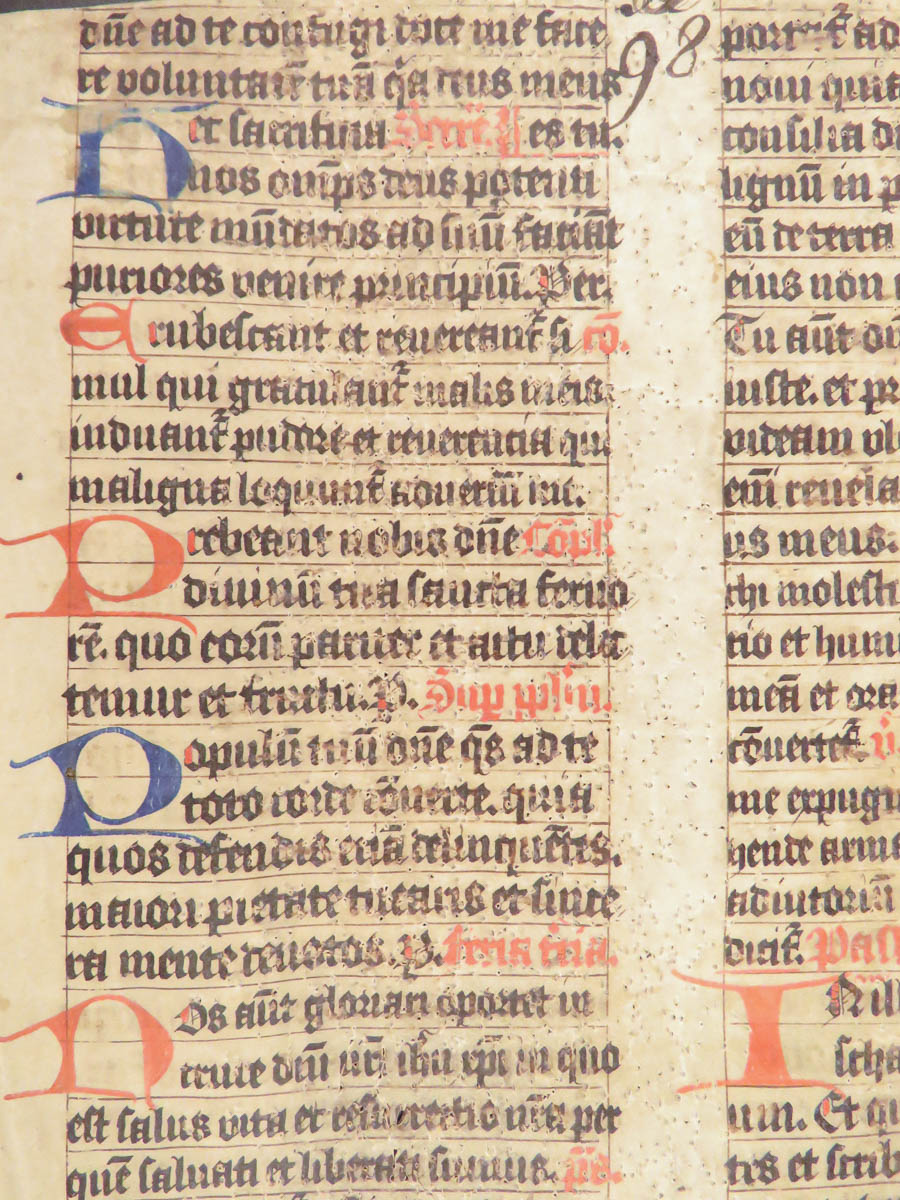 dñe ad te confugi doce me face
re voluntatē tuā q̃a deus meus
et sacrificia Secre. es tu.
Hec nos omīps deus potenti
virtute mūdatos ad suū faciāt
puriores venire principiū. Per.
Erubescant et revereant᷑ si cō.
mul qui gratulant᷑ malis meis.
induant᷑ pudore et reverencia qui
maligna loquunt᷑ adversū me.
Prebeant nobis dñe Cōpl.
divinū tua sancta fervo
rē. quo eorū pariter et actu delec
temur et fructu. P. Sup pplm.
Populū tuū dñe q̃s ad te
toto corde cōverte. quia
quos defendis eciā delinquētes.
maiori pietate tuearis et since
ra mente devotos. P. feria t̃cia.
Nos aūt gloriari oportet in
cruce dñi nr̃i ihū xp̄i in quo
est salus vita et resurrectio nr̃a per
quē salvati et liberati sumus. p̄s.
98
port
novi quia
consilia
lignū in p
eū de terra
eius non
Tu aūt
iuste. et pr
videam
em̄ revela
us meus.
chi molesti
cio et humi
meā et ora
cōvertet᷑
me expug
hende arma
adiutoriū
dicit᷑.
In ill
scha
um. Et
tes et scrib